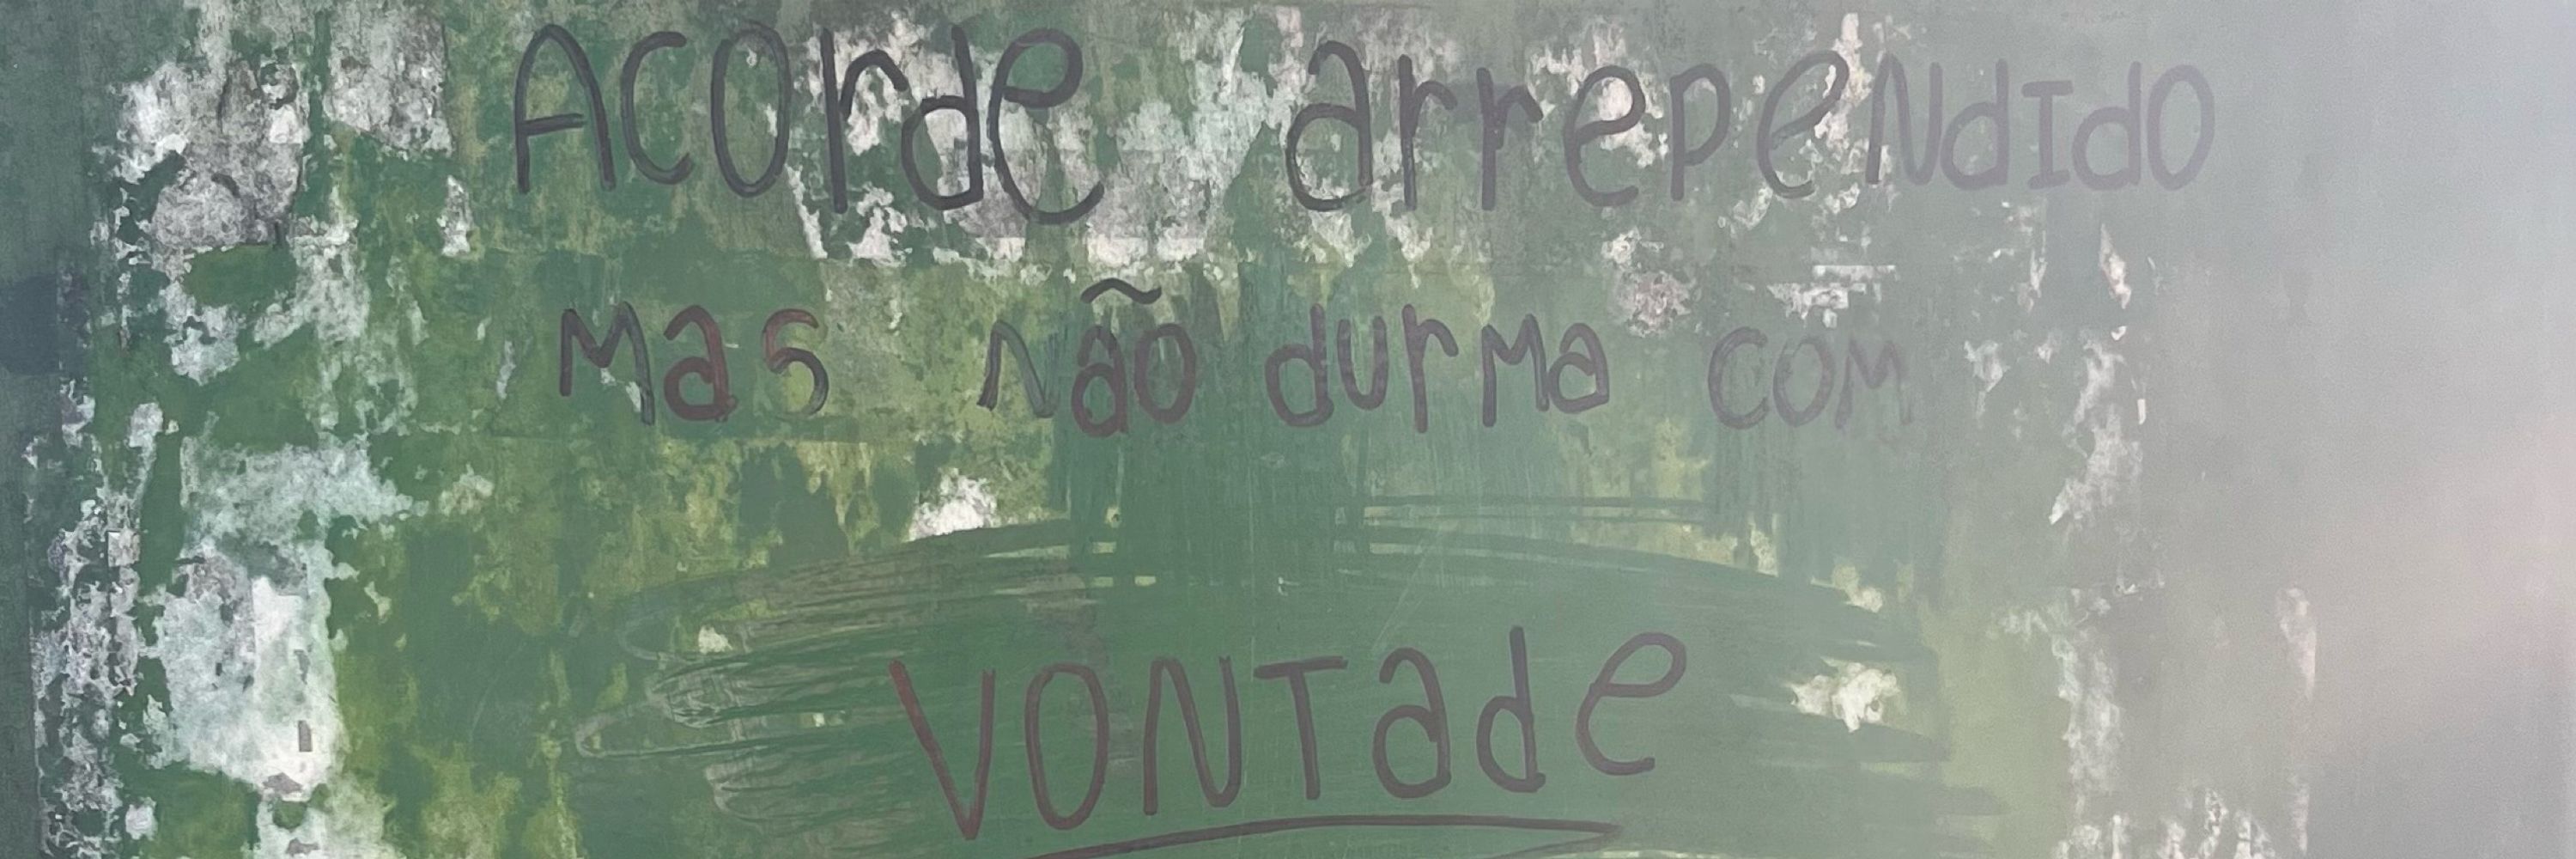 Acorde arrependido
mas não durma com
VONTade